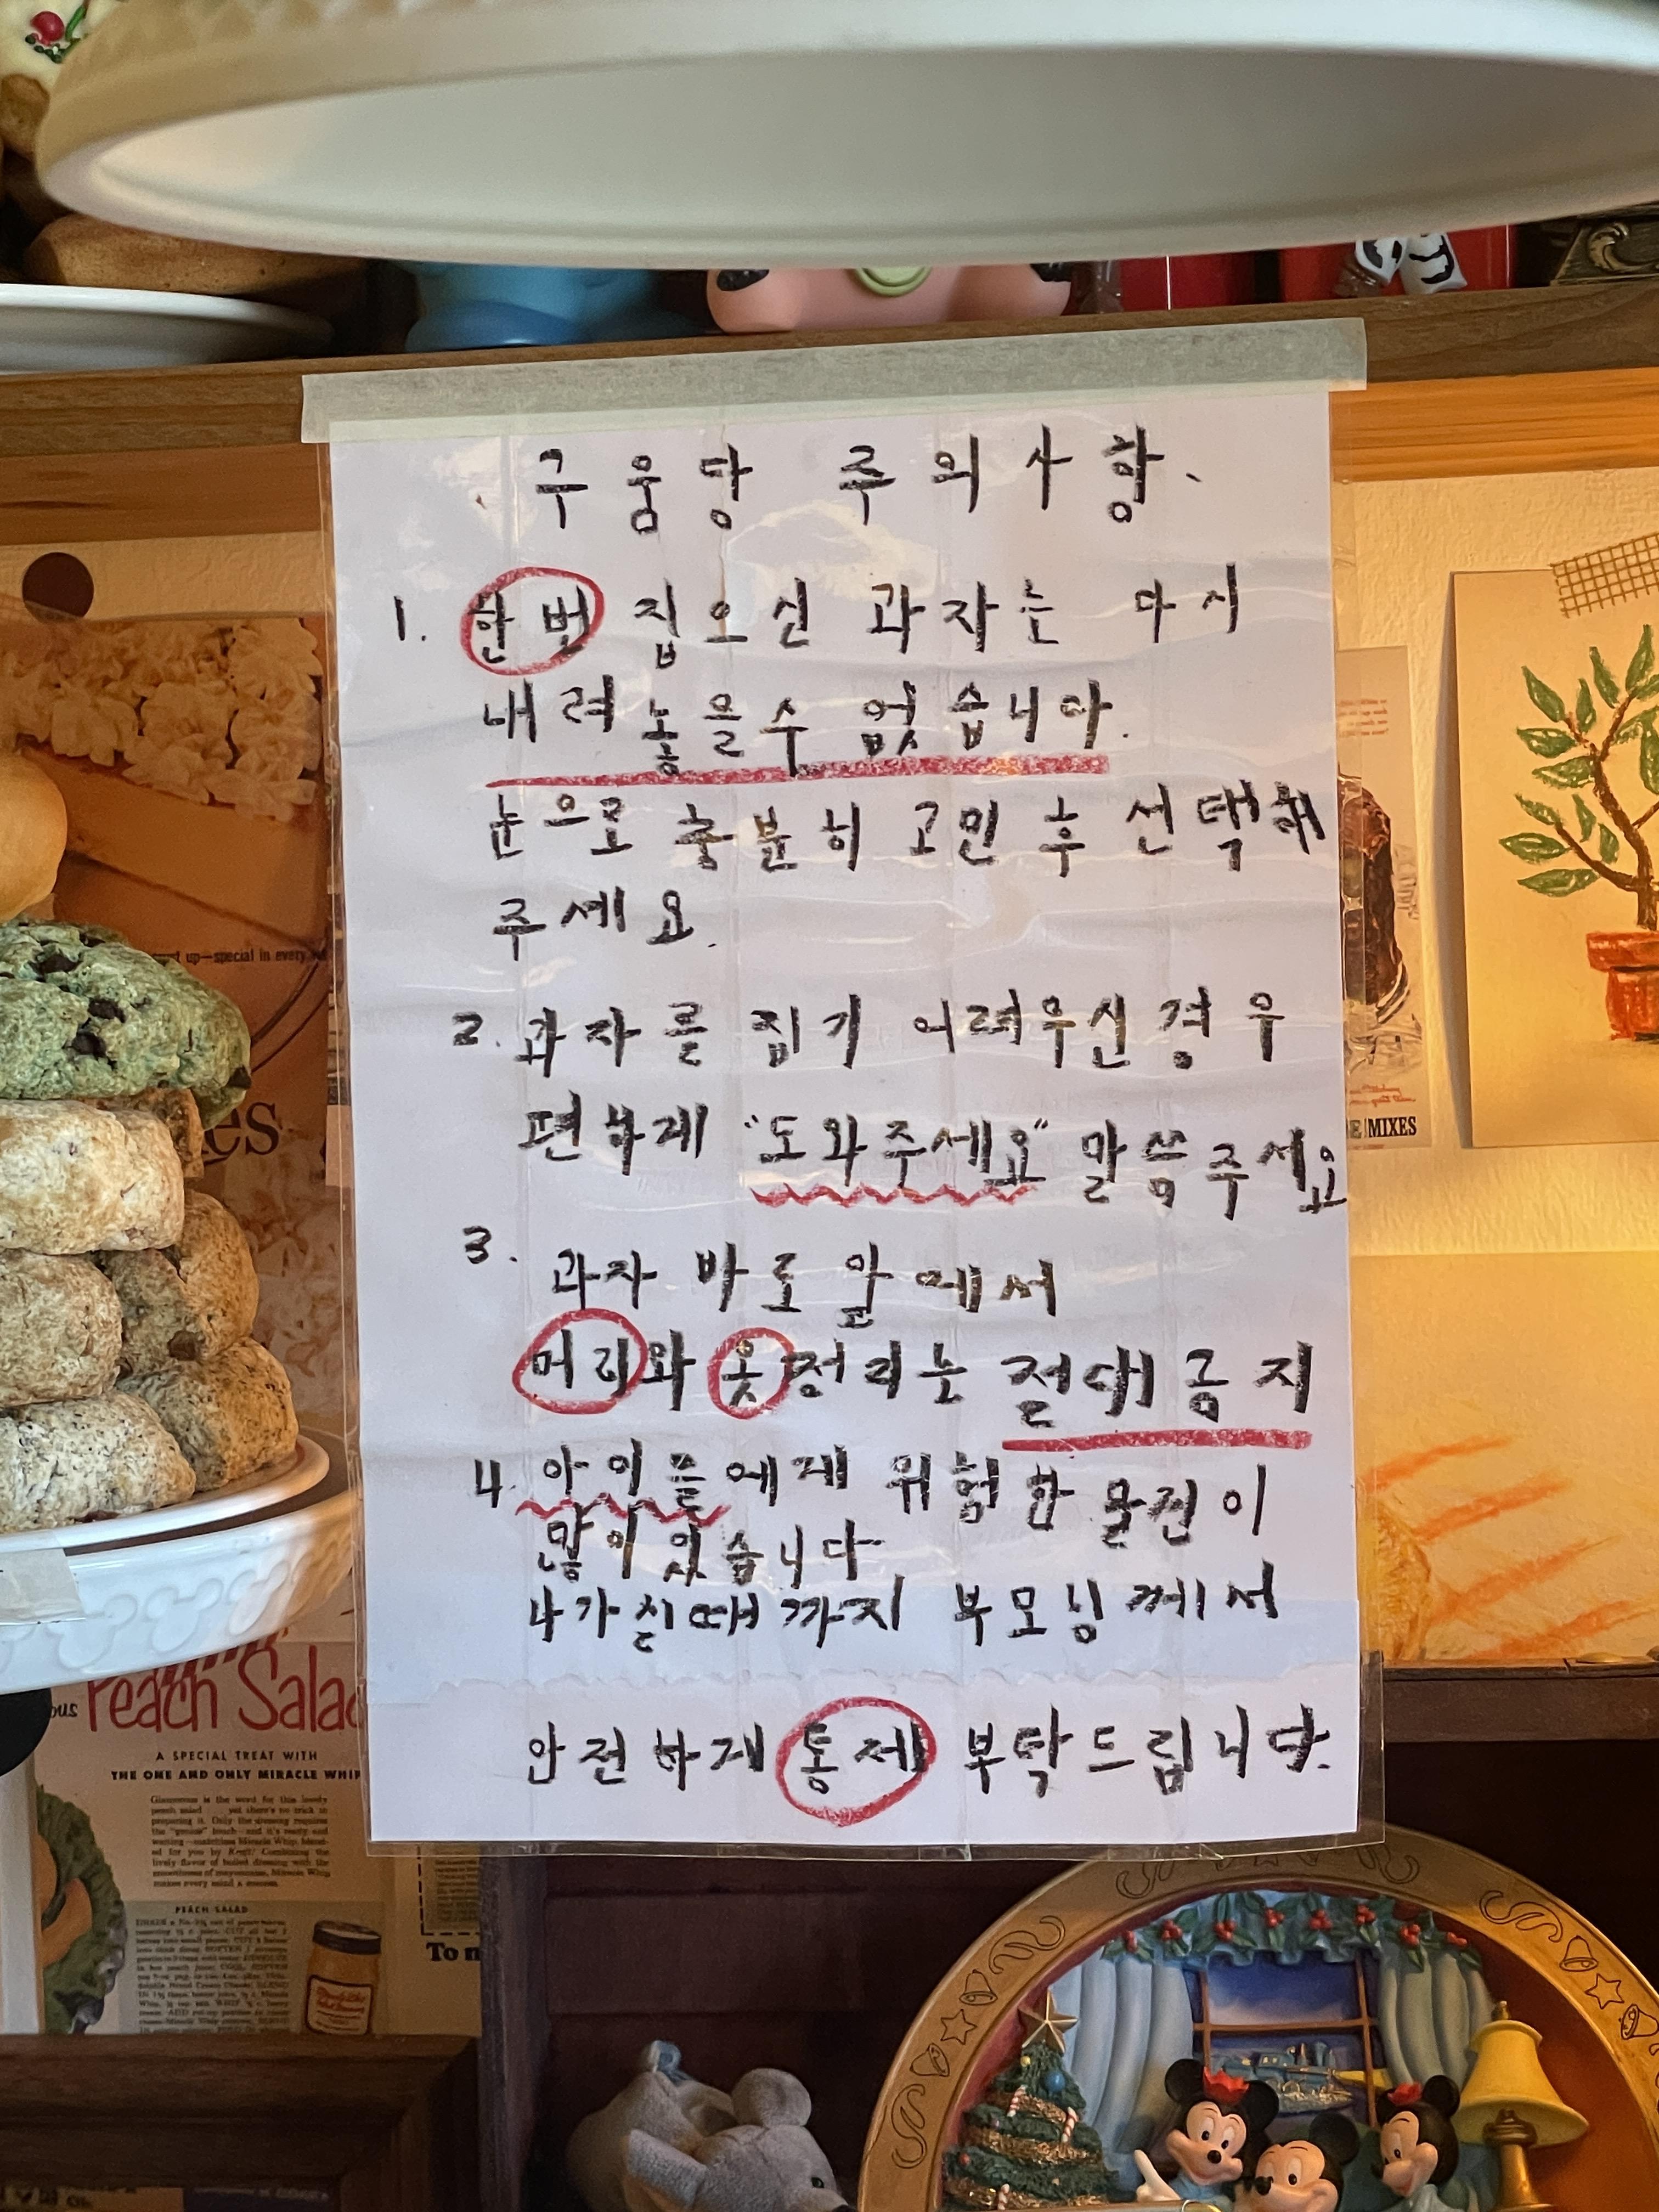 구움당 주의사항.
1. 한번 집으신 과자는 다시
내려 놓을수 없습니다.
눈으로 충분히 고민 후 선택해
주세요.
2. 과자를 집기 어려우신 경우
편하게 "도와주세요" 말씀주세요
3. 과자 바로 앞에서
머리와 옷정리는 절대금지
4. 아이들에게 위험한 물건이
많이 있습니다
나가실때까지 부모님께서
안전하게 통제 부탁드립니다.
up—special in every
MIXES
Peach Salad
A SPECIAL TREAT WITH
THE ONE AND ONLY MIRACLE WHIP
PEACH SALAD